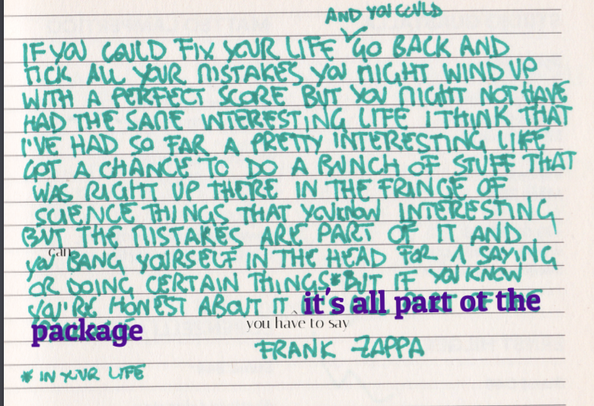 AND YOU COULD
IF YOU COULD FIX YOUR LIFE GO BACK AND
TICK ALL YOUR MISTAKES YOU MIGHT WIND UP
WITH A PERFECT SCORE BUT YOU MIGHT NOT HAVE
HAD THE SAME INTERESTING LIFE I THINK THAT
I'VE HAD SO FAR A PRETTY INTERESTING LIFE
GOT A CHANCE TO DO A BUNCH OF STUFF THAT
WAS RIGHT UP THERE IN THE FRINGE OF
SCIENCE THINGS THAT YOU KNOW INTERESTING
BUT THE MISTAKES ARE PART OF IT AND
can
YOU BANG YOURSELF IN THE HEAD FOR A SAYING
OR DOING CERTAIN THINGS* BUT IF YOU KNOW
YOU'RE HONEST ABOUT IT it's all part ot the
package
you have to say
FRANK ZAPPA
* IN YOUR LIFE